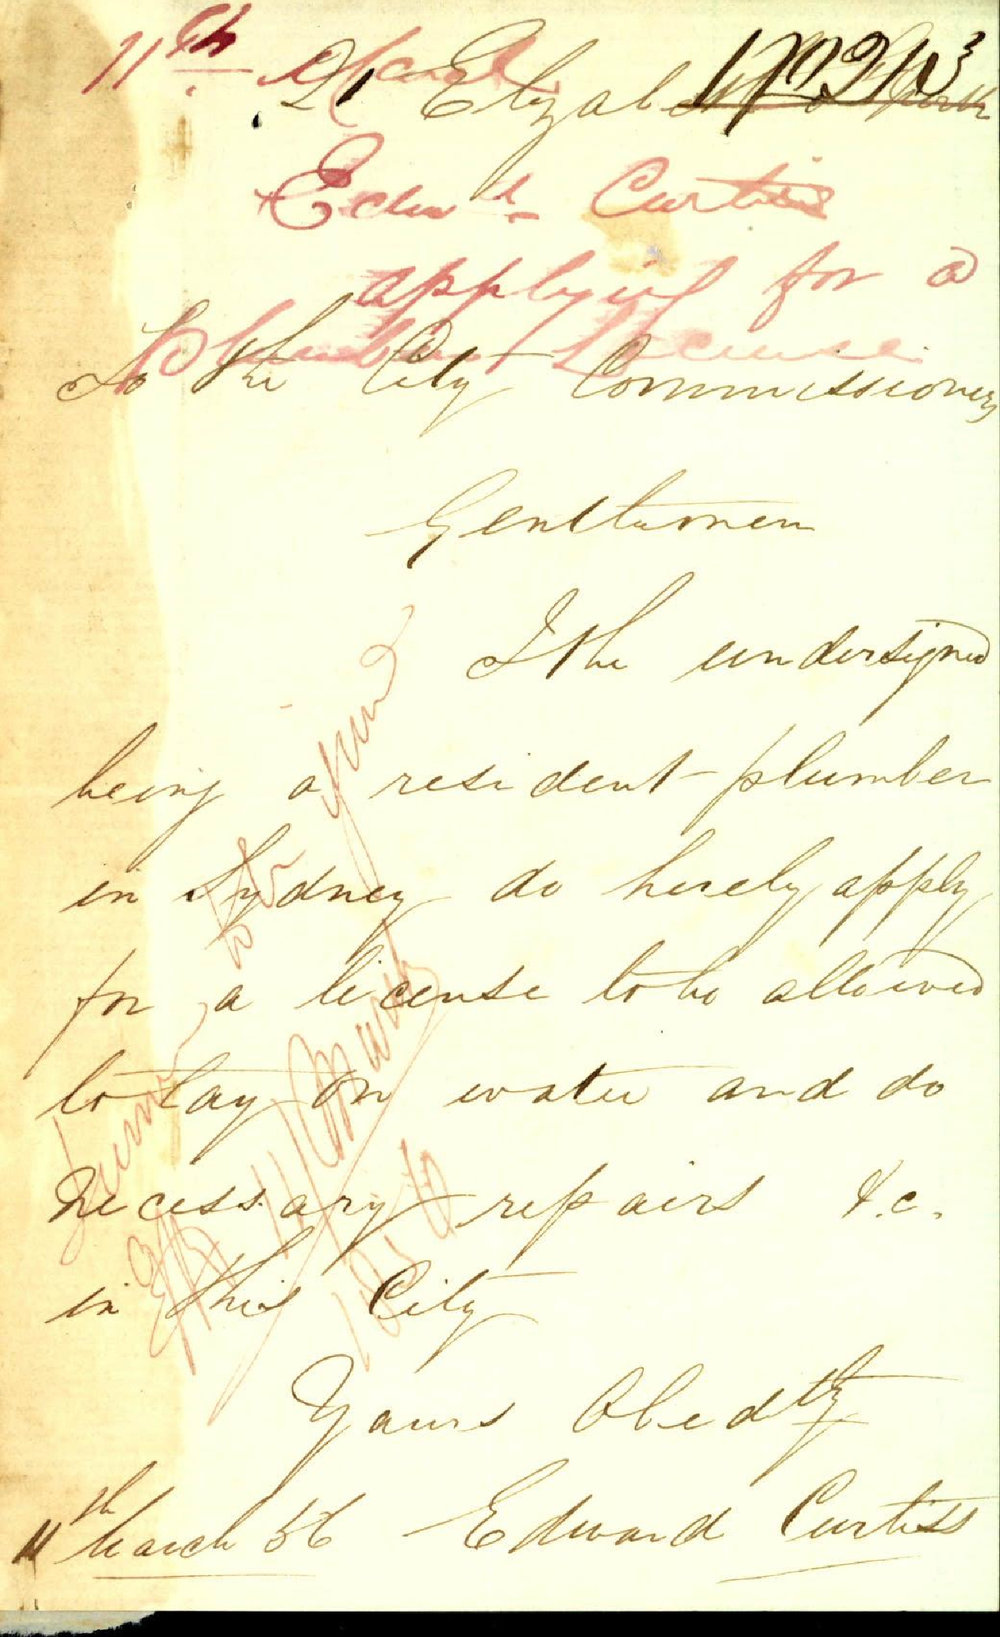 11th March
21 Elizabeth St North
Edwd. Curtiss
applying for a
Plumbers License
To the City Commissioners
Gentlemen
I the undersigned
being a resident plumber
in Sydney do herely apply
for a license to be allowed
to lay on water and do
necessary repairs &.c.
in this City
Yours Obedtly
11th March 56 Edward Curtiss